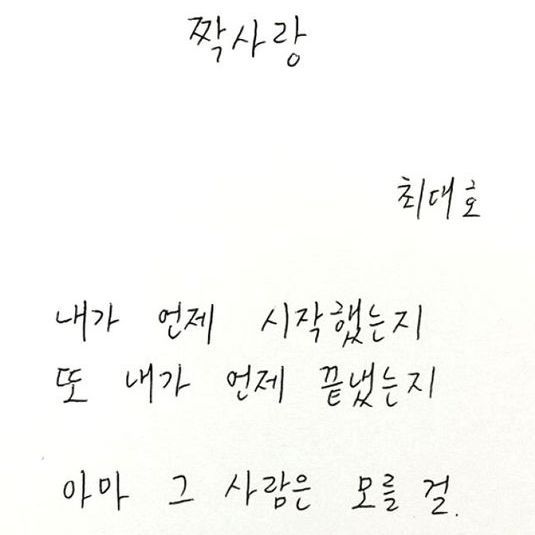 짝사랑
최대호
내가 언제 시작했는지
또 내가 언제 끝냈는지
아마 그 사람은 모를 걸.